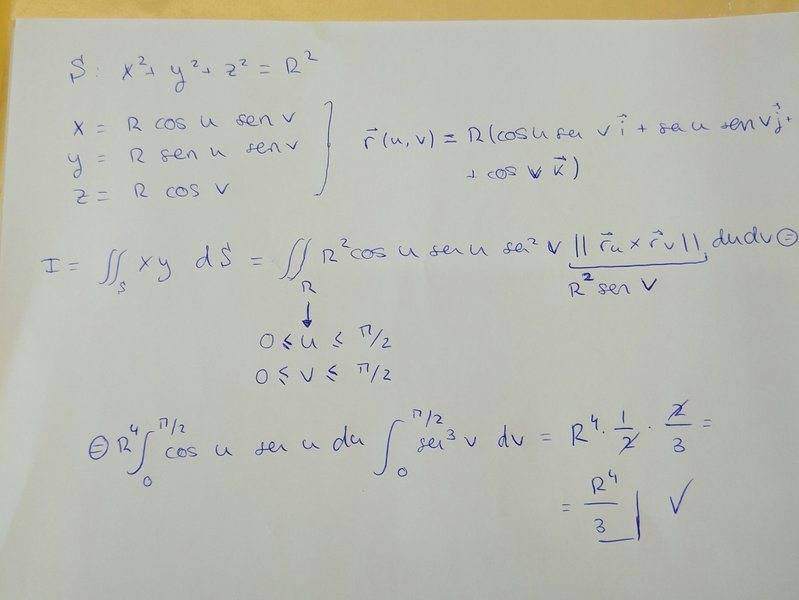 S: x² + y² + z² = R²
x = R cos u sen v
y = R sen u sen v
z = R cos v
r⃗(u, v) = R(cos u sen v i⃗ + sen u sen v j⃗ +
+ cos v k⃗)
I = ∬_S xy dS = ∬_R R² cos u sen u sen² v ||r⃗u × r⃗v|| du dv ⊜
R² sen v
↓
0 ≤ u ≤ π/2
0 ≤ v ≤ π/2
⊜ R⁴ ∫₀^{π/2} cos u sen u du ∫₀^{π/2} sen³ v dv = R⁴ · 1/2 · 2/3 =
= R⁴/3 ✓